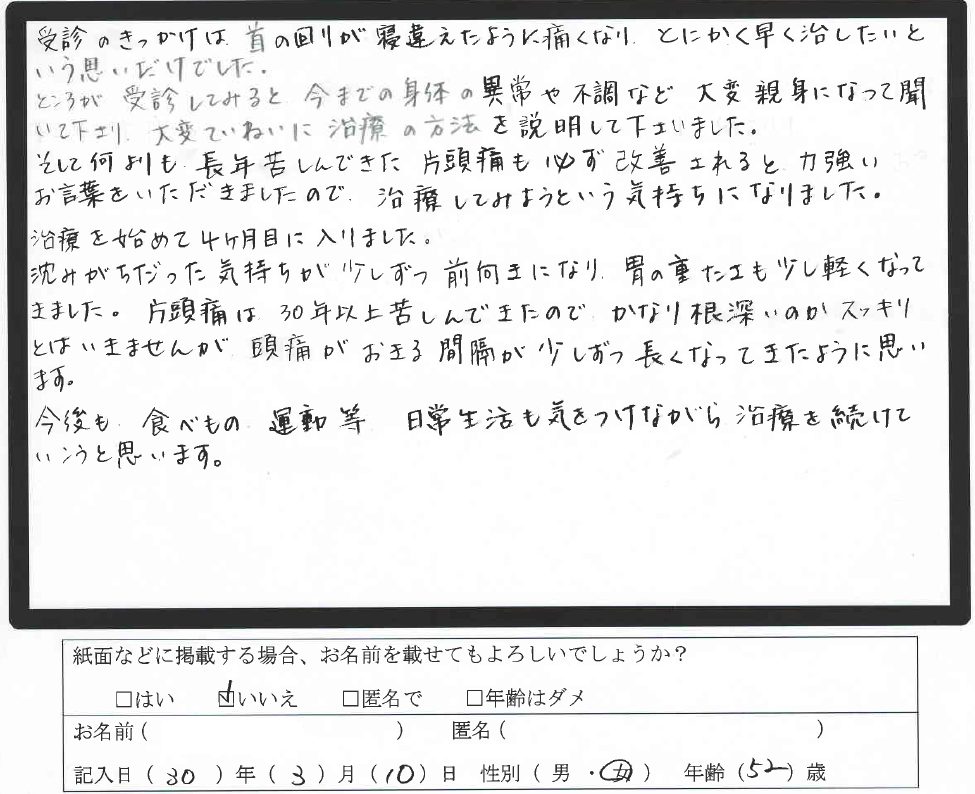 受診のきっかけは、首の回りが寝違えたように痛くなり、とにかく早く治したいと
いう思いだけでした。
ところが、受診してみると、今までの身体の異常や不調など、大変親身になって聞
いて下さり、大変ていねいに治療の方法を説明して下さいました。
そして何よりも、長年苦しんできた片頭痛も必ず改善されると、力強い
お言葉をいただきましたので、治療してみようという気持ちになりました。
治療を始めて4ヶ月目に入りました。
沈みがちだった気持ちが少しずつ前向きになり、胃の重たさも少し軽くなって
きました。片頭痛は、30年以上苦しんできたので、かなり根深いのかスッキリ
とはいきませんが、頭痛がおきる間隔が少しずつ長くなってきたように思い
ます。
今後も、食べもの、運動等、日常生活も気をつけながら治療を続けて
いこうと思います。
紙面などに掲載する場合、お名前を載せてもよろしいでしょうか？
□はい ☑いいえ □匿名で □年齢はダメ
お名前（ ） 匿名（ ）
記入日（30）年（3）月（10）日 性別（男・女） 年齢（52）歳